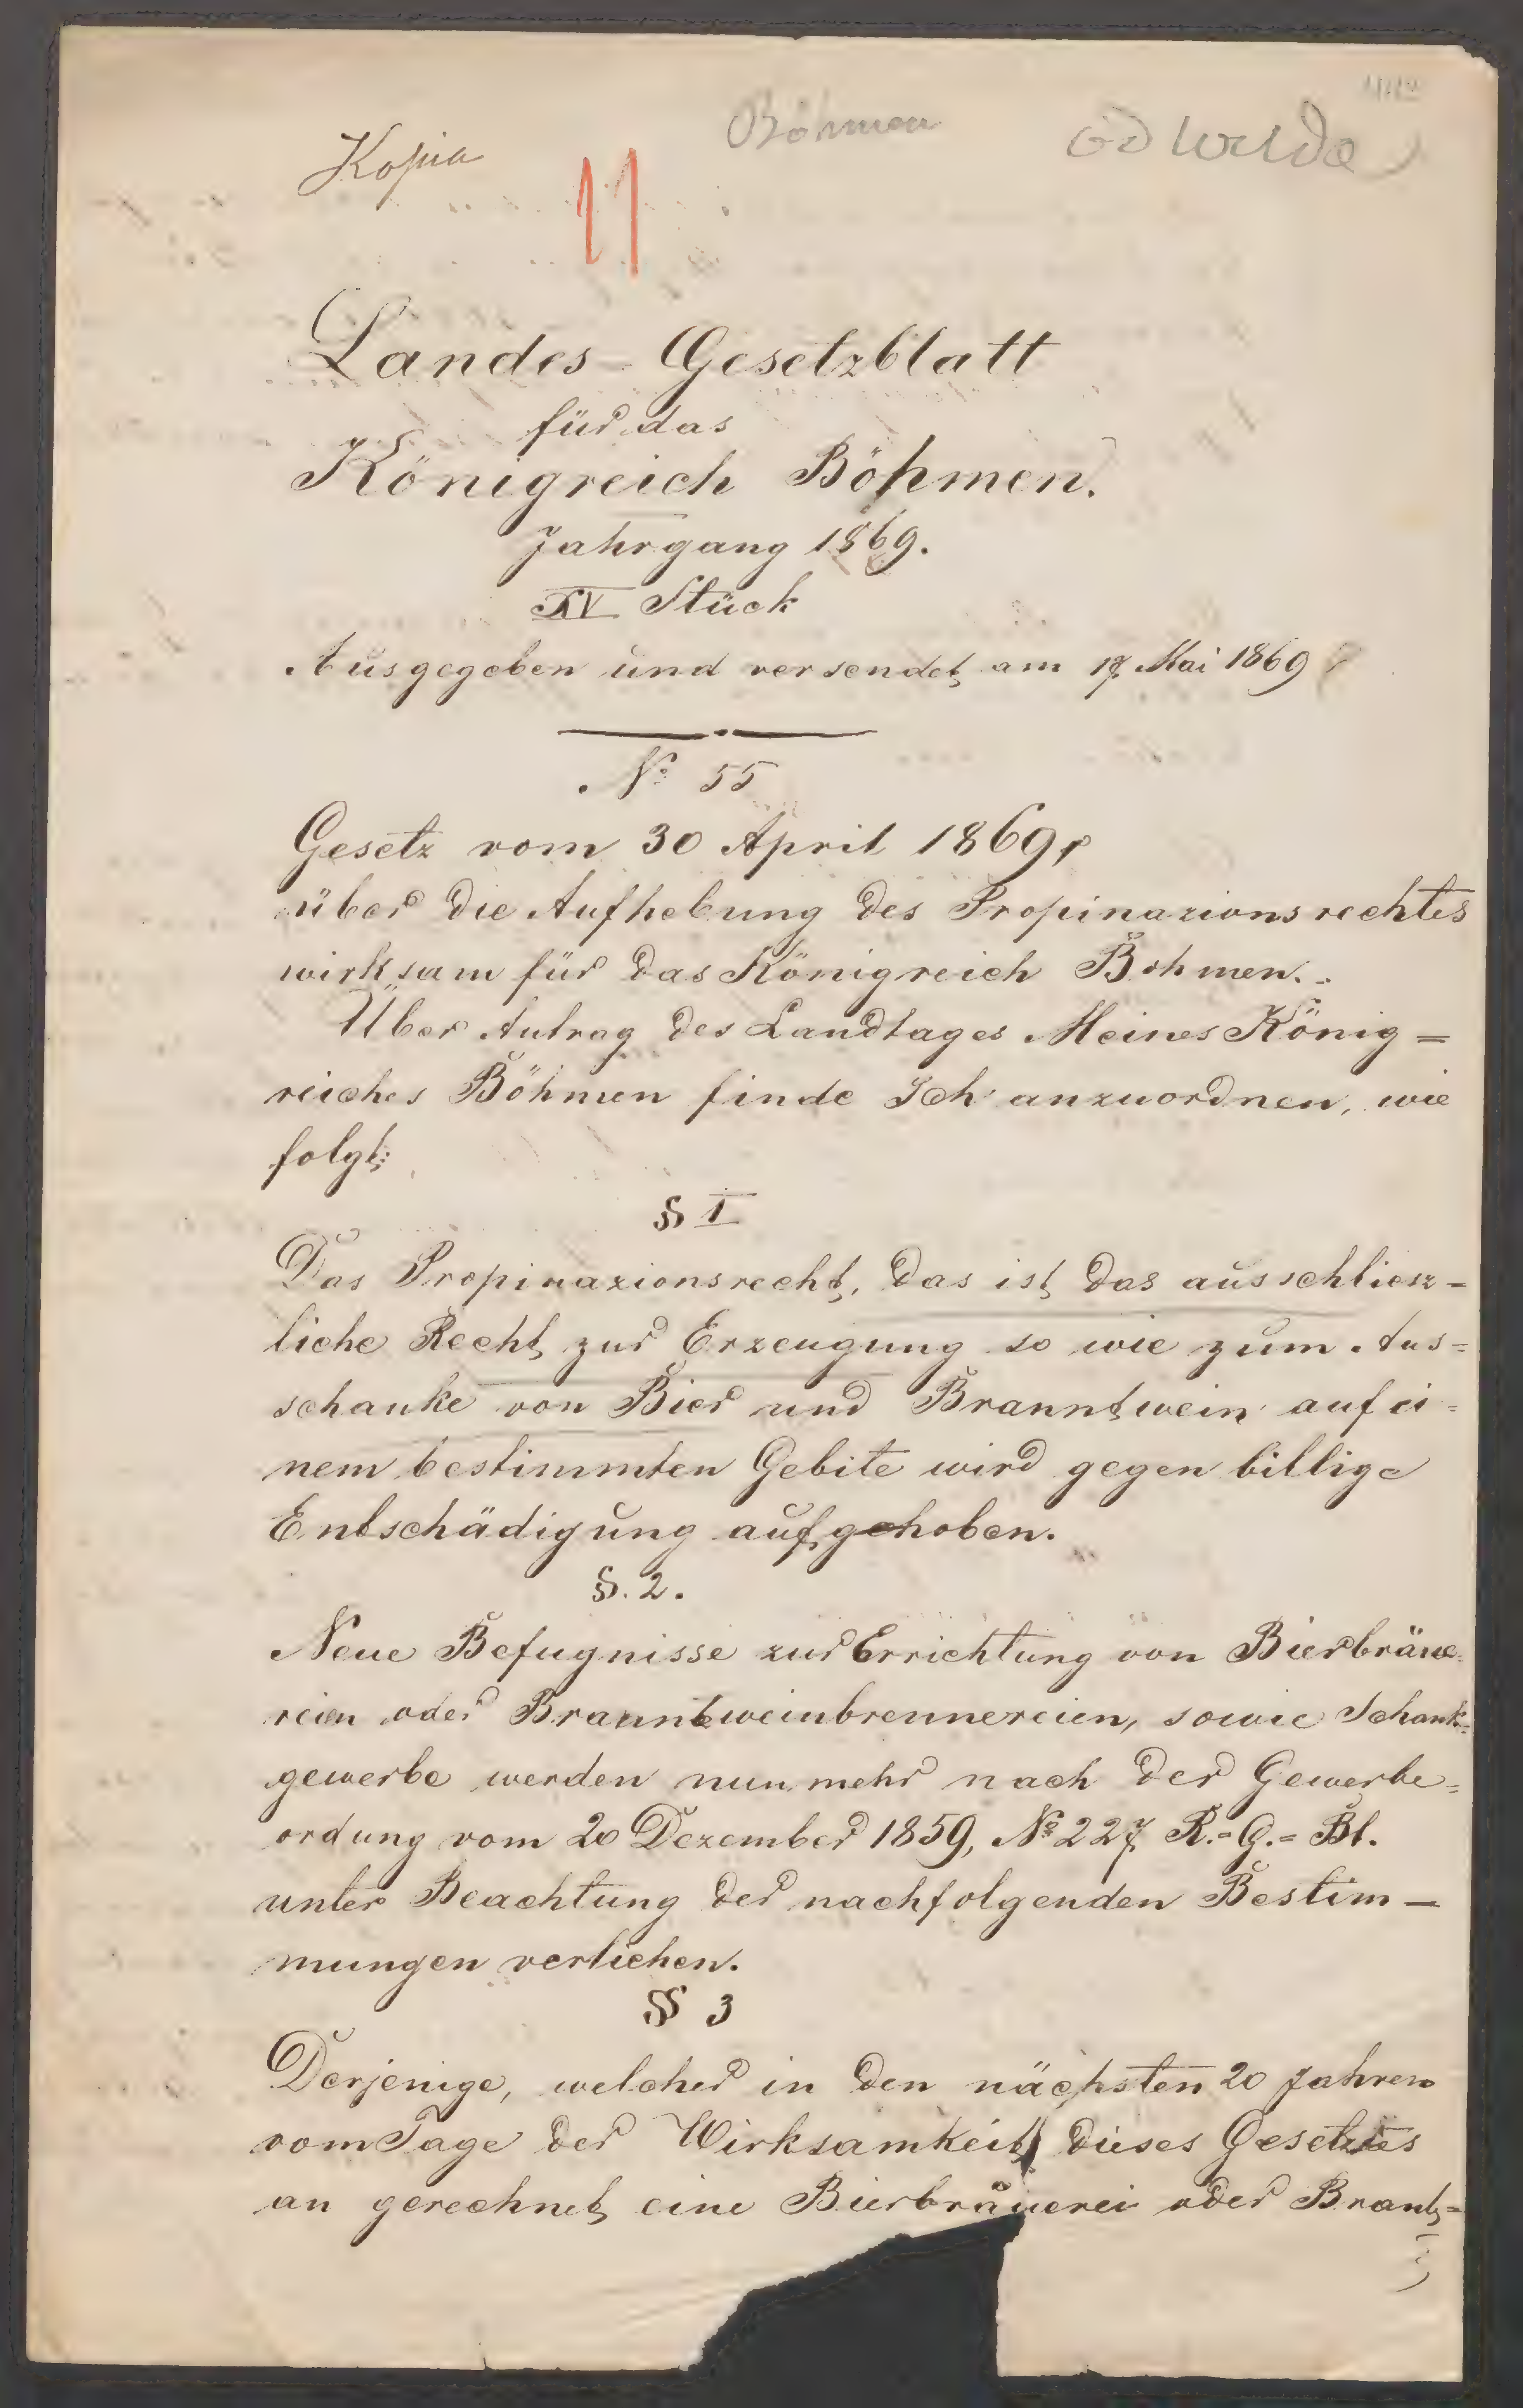 Böhmen
Kopia
11
Landes-Gesetzblatt
für das
Königreich Böhmen.
Jahrgang 1869.
XV Stück
Ausgegeben und versendet am 17 Mai 1869
№ 55
Gesetz vom 30 April 1869,
über die Aufhebung des Propinazionsrechtes
wirksam für das Königreich Böhmen.
Über Antrag des Landtages Meines König=
reiches Böhmen finde Ich anzuordnen, wie
folgt:
§ I
Das Propinazionsrecht, das ist das ausschliesz-
liche Recht zur Erzeugung so wie zum Aus=
schanke von Bier und Branntwein auf ei=
nem bestimmten Gebite wird gegen billige
Entschädigung aufgehoben.
§. 2.
Neue Befugnisse zur Errichtung von Bierbräue=
reien oder Branntweinbrennereien, sowie Schank=
gewerbe werden nunmehr nach der Gewerbe=
ordung vom 20 Dezember 1859, № 227 R.=G.=Bl.
unter Beachtung der nachfolgenden Bestim-
mungen verliehen.
§ 3
Derjenige, welcher in den nächsten 20 Jahren
vom Tage der Wirksamkeit dieses Gesetzes
an gerechnet eine Bierbräuerei oder Brant=